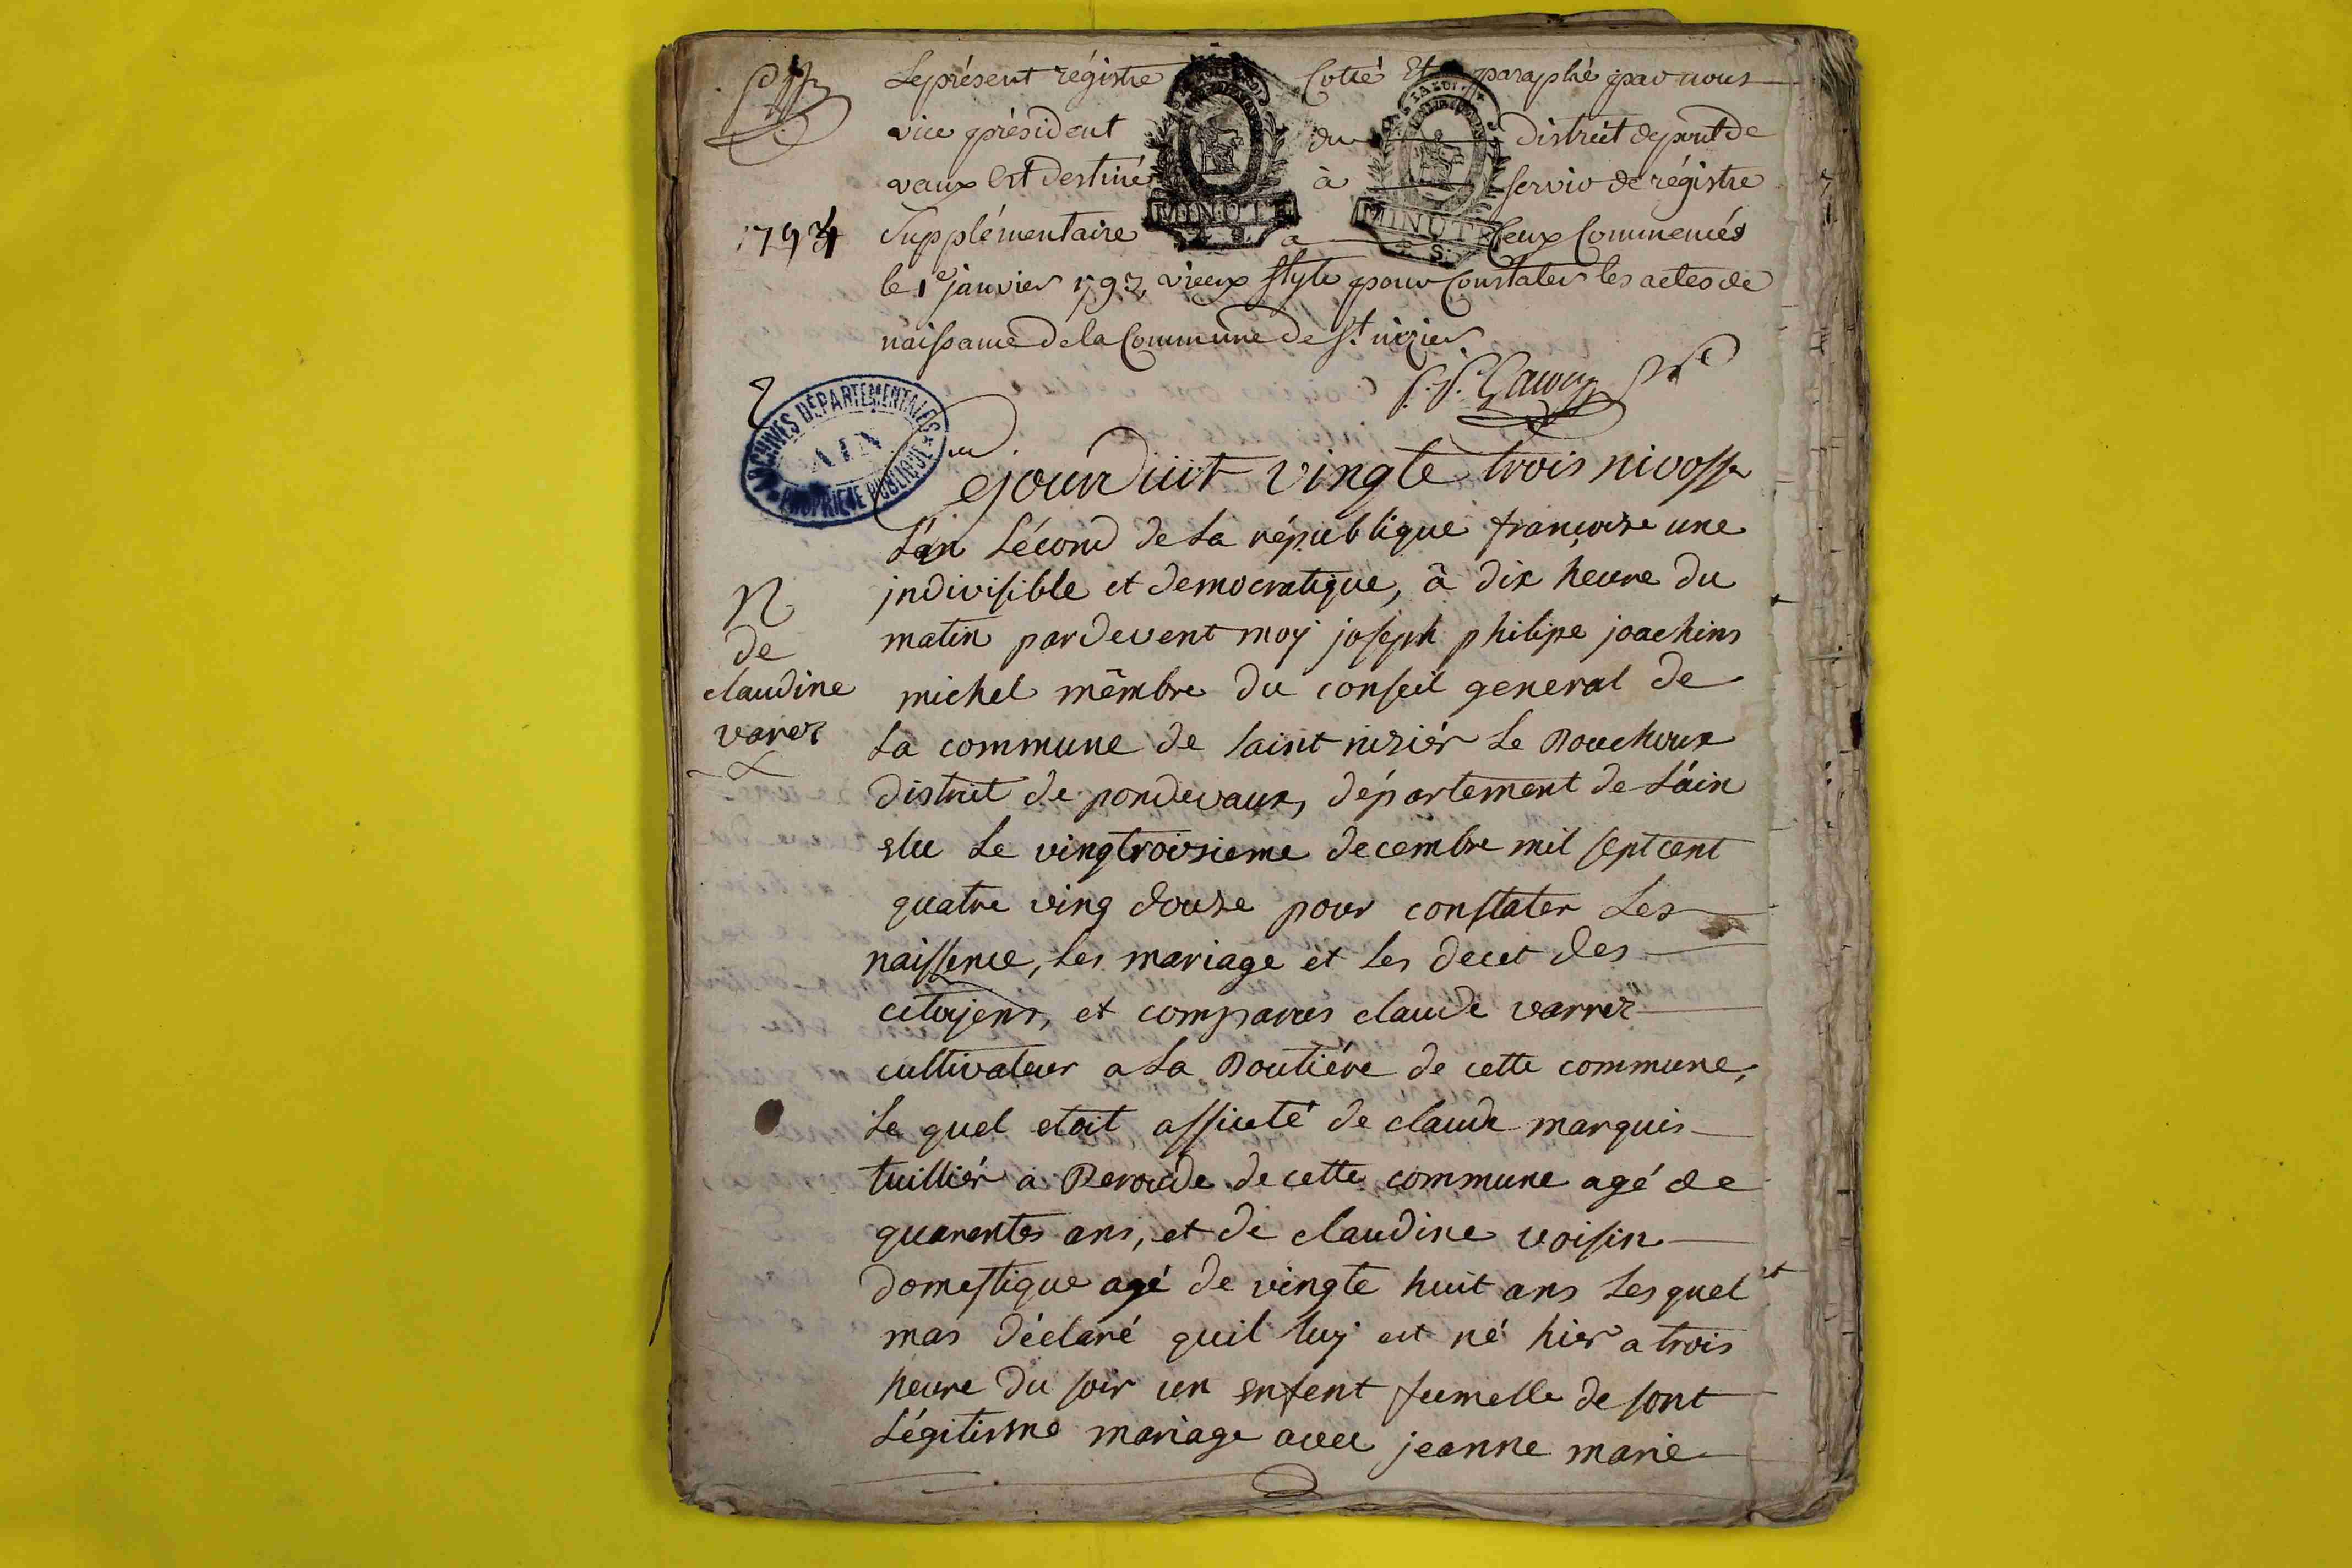 Le présent régistre Cotté Et paraphé par nous
vice président du District de pont de
vaux Est destiné à servir de régistre
1794 Supplémentaire a Ceux Commencés
le 1er janvier 1793, vieux style pour Constater les actes de
naissance de la Commune de St. nizier.
ARCHIVES DÉPARTEMENTALES
AIN
PROPRIÉTÉ PUBLIQUE
MINUTE
MINUTE
Cejourduit vingte trois nivosse
L'an Sécond de La république françoise une
indivisible et democratique, à dix heure du
matin pardevent moy joseph philipe joachim
michel mêmbre du conseil general de
La commune de saint niziér Le Bouchoux
district de pondevaux, département de L'ain
elu Le vingtroisieme decembre mil sept cent
quatre ving douze pour constater Les
naissence, Les mariage et Les decet des
citoyens, et comparus claude varrez
cultivateur a La Boutiére de cette commune,
Le quel etoit assicté de claude marquis
tuilliér a Revoude de cette commune agé de
quarentes ans, et de claudine voisin
domestique agé de vingte huit ans Les quel et
mas déclaré quil luy est né hier a trois
heure du soir un enfent fumelle de sont
Légitisme mariage avec jeanne marie
N
de
claudine
varez